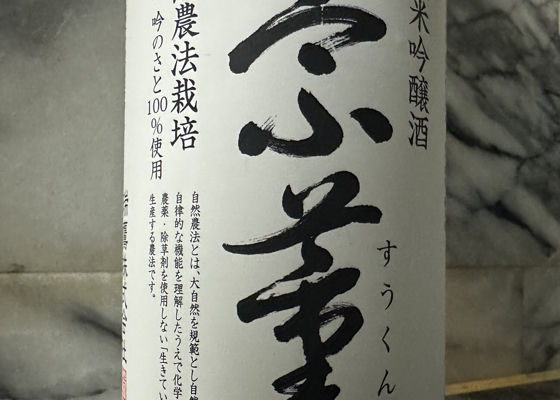 米吟醸酒
崇薫
すうくん
農法栽培
吟のさと100%使用
自然農法とは、大自然を規範とし自然
自律的な機能を理解したうえで化学
農薬・除草剤を使用しない「生きてい
生産する農法です。